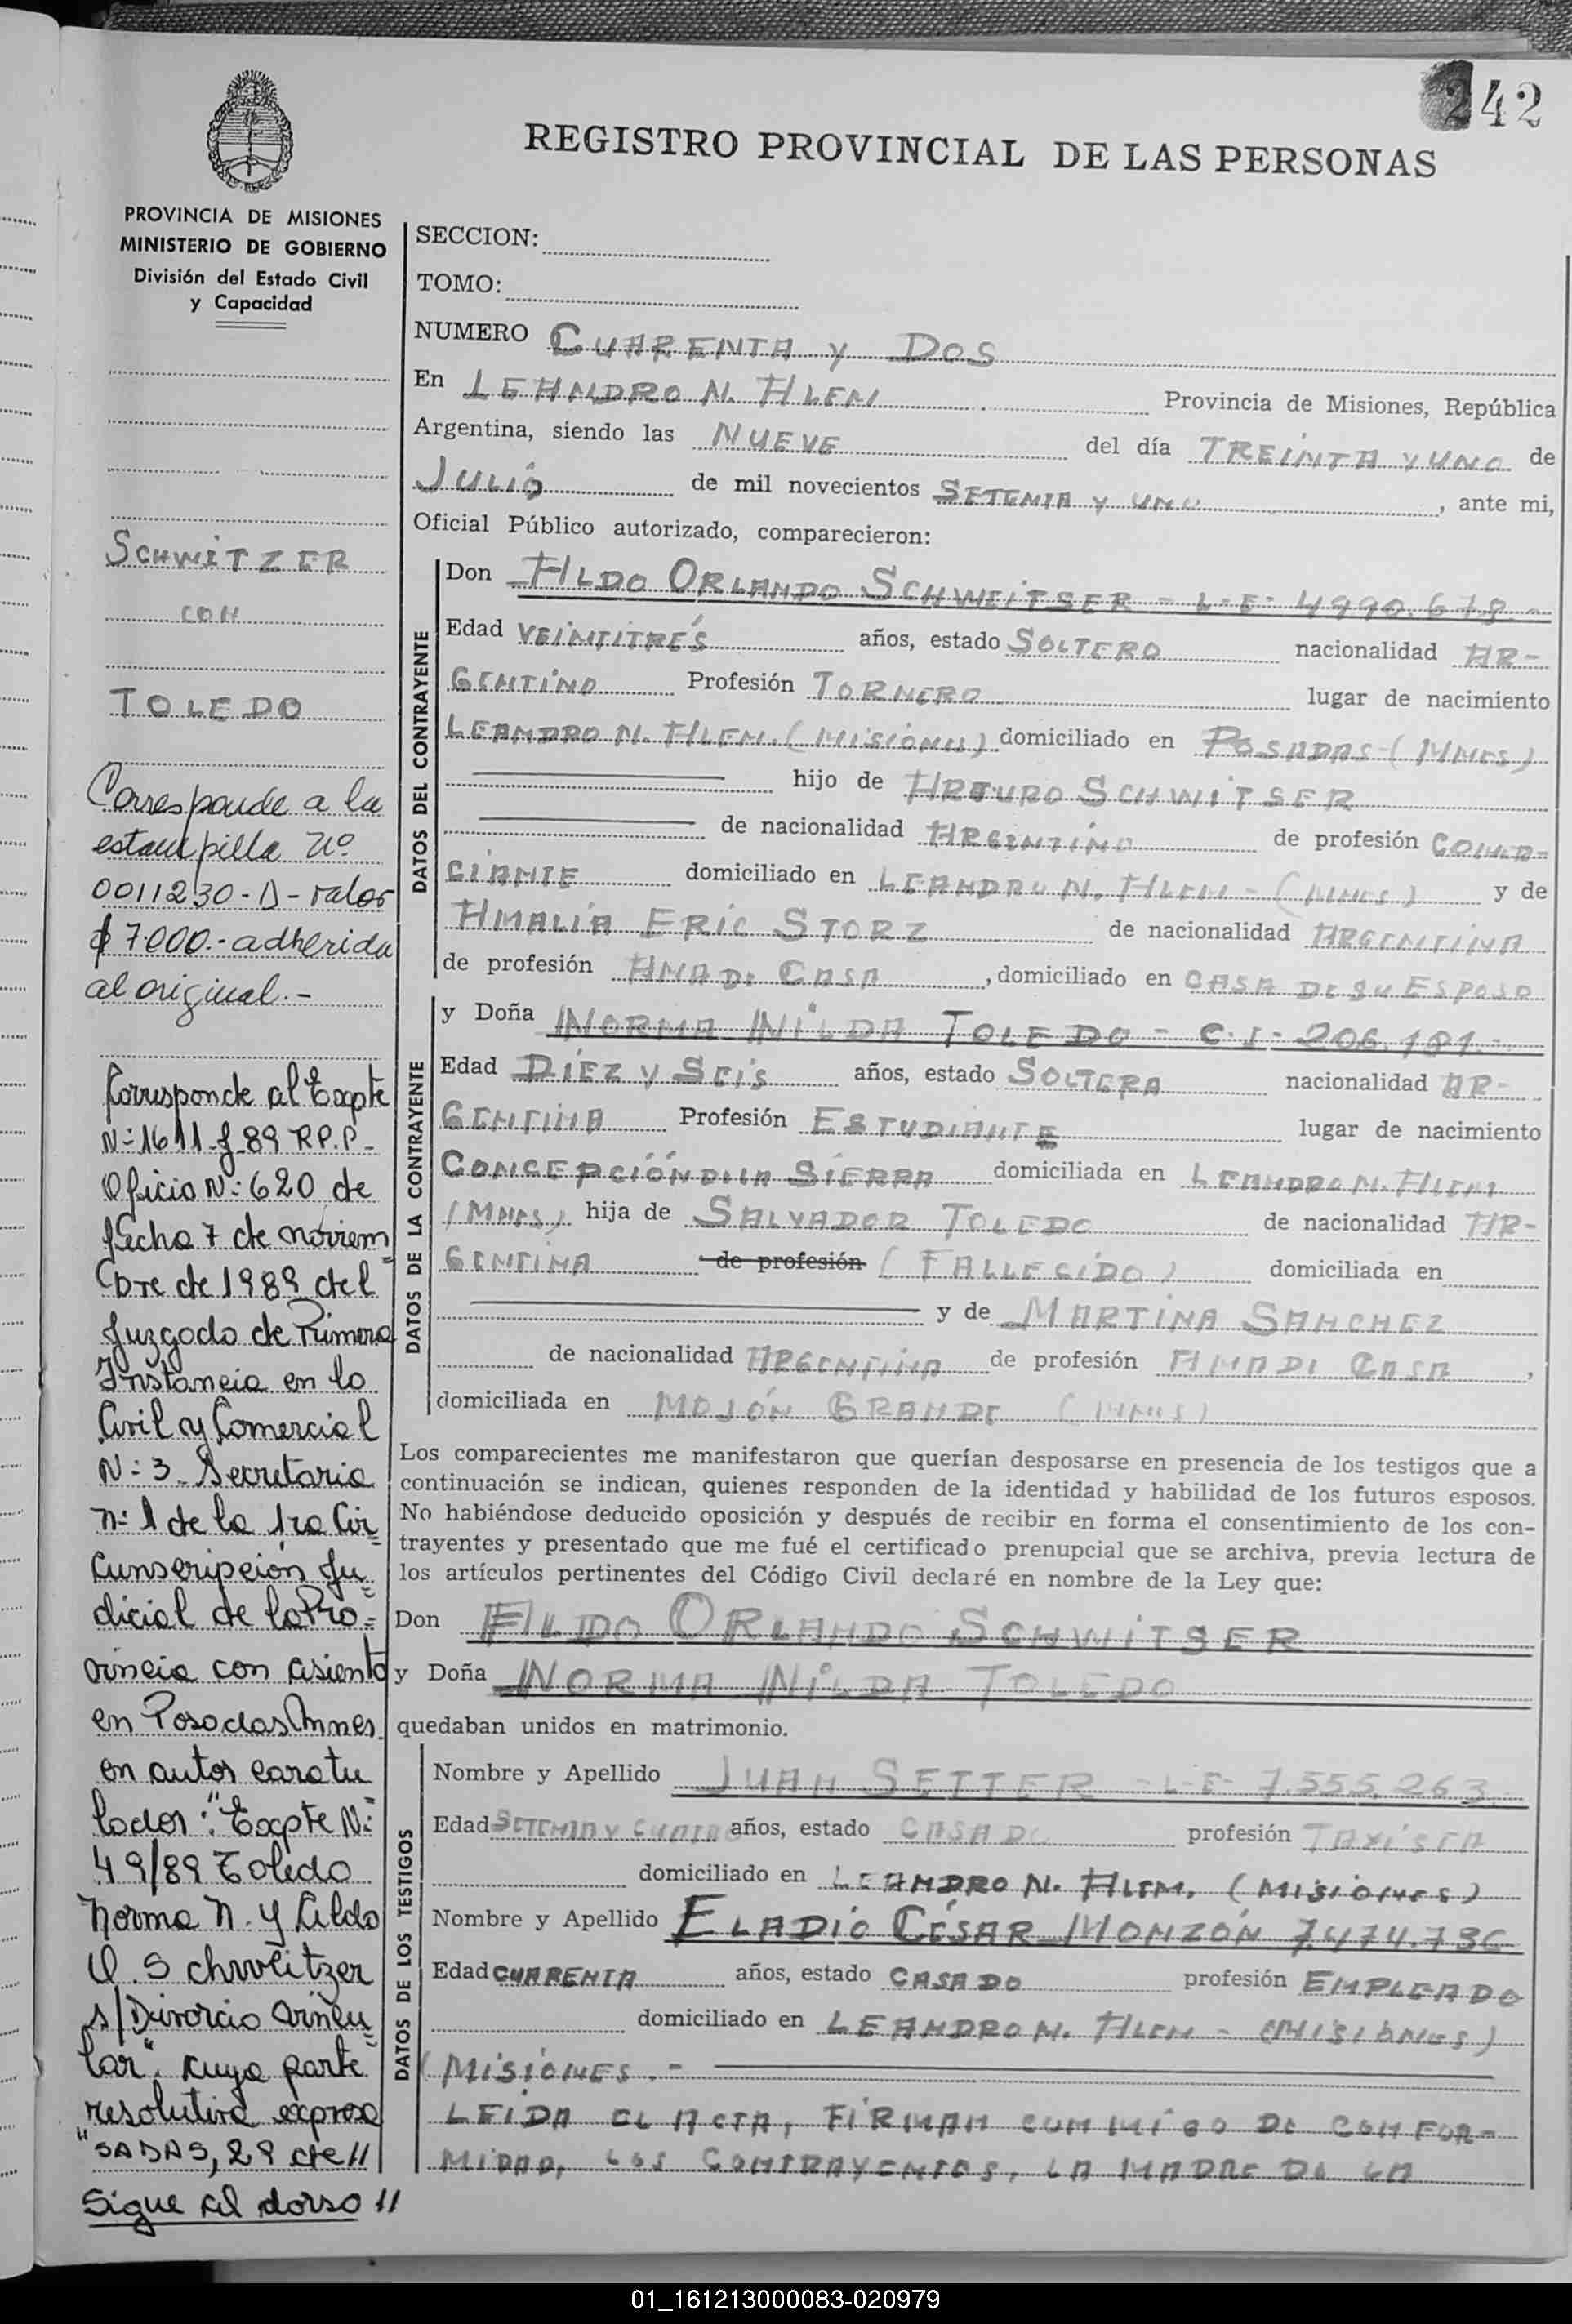 242
REGISTRO PROVINCIAL DE LAS PERSONAS
PROVINCIA DE MISIONES
MINISTERIO DE GOBIERNO
División del Estado Civil
y Capacidad
SCHWITZER
CON
TOLEDO
Corresponde a la
estampilla Nº
0011230-D-valor
$ 7000.- adherida
al original.-
Corresponde al Expte
N:1611-J-89 R.P.P-
Oficio N: 620 de
fecha 7 de noviem=
bre de 1989 del
Juzgado de Primera
Instancia en lo
Civil y Comercial
N:3 Secretaria
n:1 de la 1ra Cir=
cunscripción Ju=
dicial de la Pro=
vincia con asiento
en Posadas Mnes.
en autos caratu
lados: "Expte N:
49/89 Toledo
Norma N. y Aldo
O. Schweitzer
s/Divorcio Vincu=
lar", cuya parte
resolutiva expresa
"SADAS, 29 de //
Sigue al dorso //
SECCION:
TOMO:
NUMERO CUARENTA Y DOS
En LEANDRO N. ALEM Provincia de Misiones, República
Argentina, siendo las NUEVE del día TREINTA Y UNO de
JULIO de mil novecientos SETENTA Y UNO, ante mi,
Oficial Público autorizado, comparecieron:
DATOS DEL CONTRAYENTE
Don ALDO ORLANDO SCHWEITSER - L-E- 4990.678 -
Edad VEINTITRÉS años, estado SOLTERO nacionalidad AR-
GENTINO Profesión TORNERO lugar de nacimiento
LEANDRO N. ALEM. (MISIONES) domiciliado en POSADAS-(MNES)
hijo de ARTURO SCHWITSER
de nacionalidad ARGENTINO de profesión COMER-
CIANTE domiciliado en LEANDRO N. ALEM - (MNES) y de
AMALIA ERIC STORZ de nacionalidad ARGENTINA
de profesión AMA DE CASA, domiciliado en CASA DE SU ESPOSO
DATOS DE LA CONTRAYENTE
y Doña NORMA NILDA TOLEDO - C-I- 206.181.-
Edad DIEZ Y SEIS años, estado SOLTERA nacionalidad AR-
GENTINA Profesión ESTUDIANTE lugar de nacimiento
CONCEPCIÓN DE LA SIERRA domiciliada en LEANDRO N. ALEM
(MNES) hija de SALVADOR TOLEDO de nacionalidad AR-
GENTINA de profesión (FALLECIDO) domiciliada en
y de MARTINA SANCHEZ
de nacionalidad ARGENTINA de profesión AMA DE CASA,
domiciliada en MOJÓN GRANDE (MNES)
Los comparecientes me manifestaron que querían desposarse en presencia de los testigos que a
continuación se indican, quienes responden de la identidad y habilidad de los futuros esposos.
No habiéndose deducido oposición y después de recibir en forma el consentimiento de los con-
trayentes y presentado que me fué el certificado prenupcial que se archiva, previa lectura de
los artículos pertinentes del Código Civil declaré en nombre de la Ley que:
Don ALDO ORLANDO SCHWITSER
y Doña NORMA NILDA TOLEDO
quedaban unidos en matrimonio.
DATOS DE LOS TESTIGOS
Nombre y Apellido JUAN SETTER - L-E- 7.555.263.
Edad SETENTA Y CUATRO años, estado CASADO profesión TAXISTA
domiciliado en LEANDRO N. ALEM. (MISIONES)
Nombre y Apellido ELADIO CÉSAR MONZÓN 7.474.736
Edad CUARENTA años, estado CASADO profesión EMPLEADO
domiciliado en LEANDRO N. ALEM - (MISIONES)
(MISIONES.-
LEIDA EL ACTA, FIRMAN CONMIGO DE CONFOR-
MIDAD, LOS CONTRAYENTES, LA MADRE DE LA
01_161213000083-020979